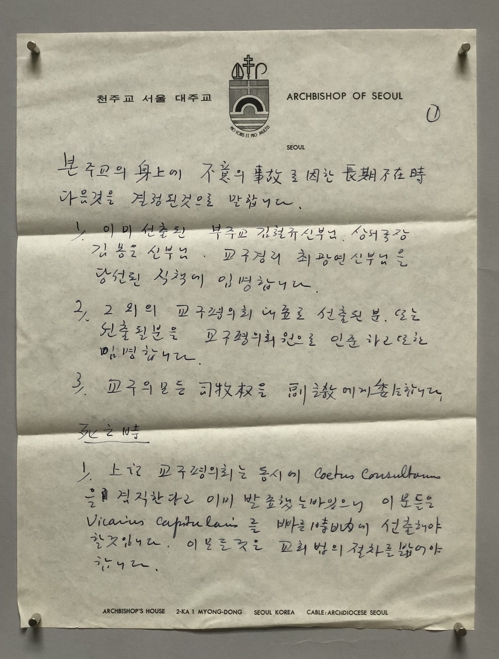 천주교 서울 대주교
ARCHBISHOP OF SEOUL
SEOUL
①
본 주교의 身上에 不意의 事故로 因한 長期不在時
다음것을 결정된것으로 말합니다.
1. 이미 선출된 부주교 김철규신부님, 상서국장
김몽은 신부님, 교구경리 최광연신부님을
당선된 직책에 임명합니다.
2. 그 외의 교구평의회 대표로 선출된 분, 또는
선출될분을 교구평의회원으로 인준하고 또한
임명합니다.
3. 교구의 모든 司牧权을 副主敎에게 委任합니다.
死亡時
1. 上記 교구평의회는 동시에 Coetus Consultorum
을 겸직한다고 이미 발표했는바있으니 이분들은
Vicarius Capitularis를 빠른 時日內에 선출해야
할것입니다. 이 모든것은 교회법의 절차를 밟어야
합니다.
ARCHBISHOP'S HOUSE 2-KA 1 MYONG-DONG SEOUL KOREA CABLE: ARCHDIOCESE SEOUL